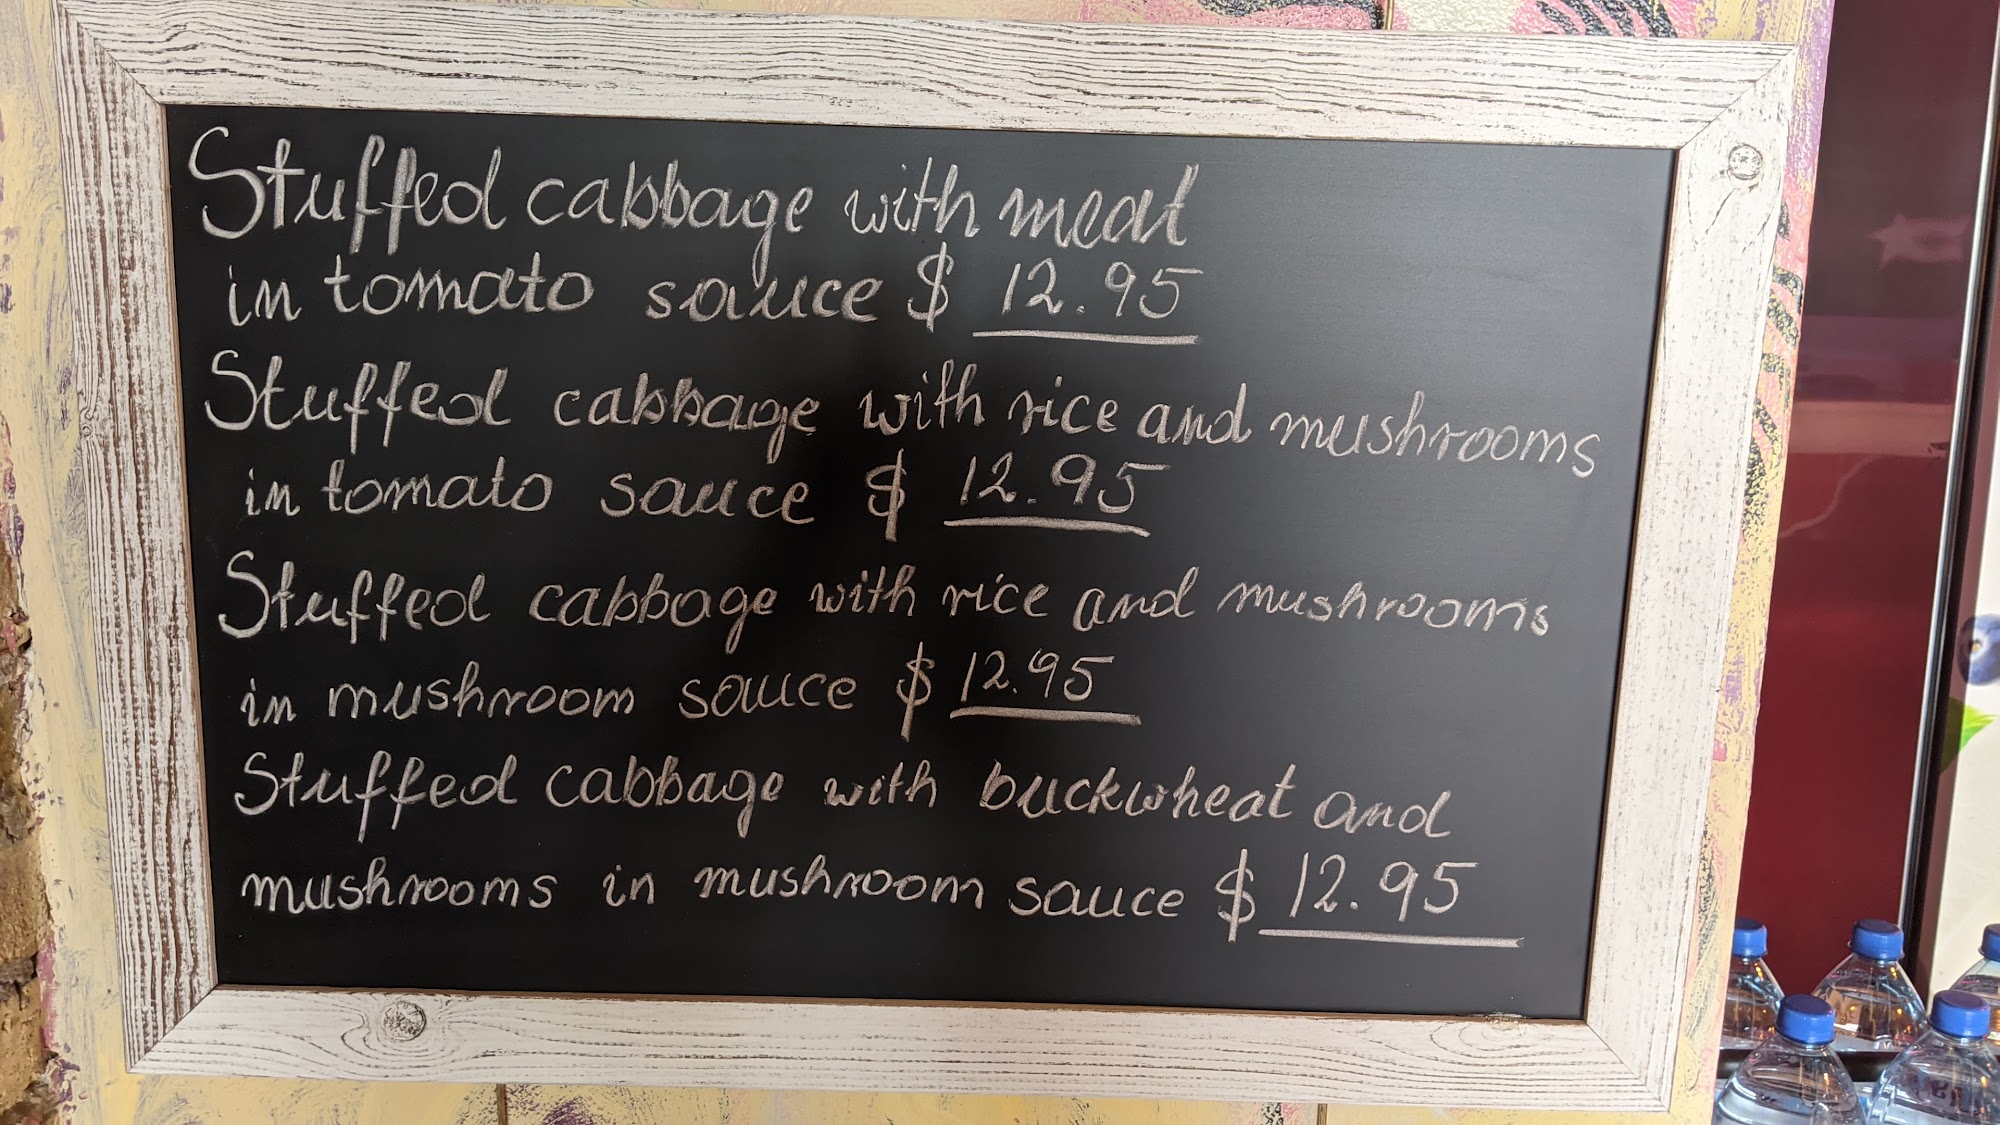 Stuffed cabbage with meat
in tomato sauce $ 12.95
Stuffed cabbage with rice and mushrooms
in tomato sauce $ 12.95
Stuffed cabbage with rice and mushrooms
in mushroom sauce $ 12.95
Stuffed cabbage with buckwheat and
mushrooms in mushroom sauce $ 12.95